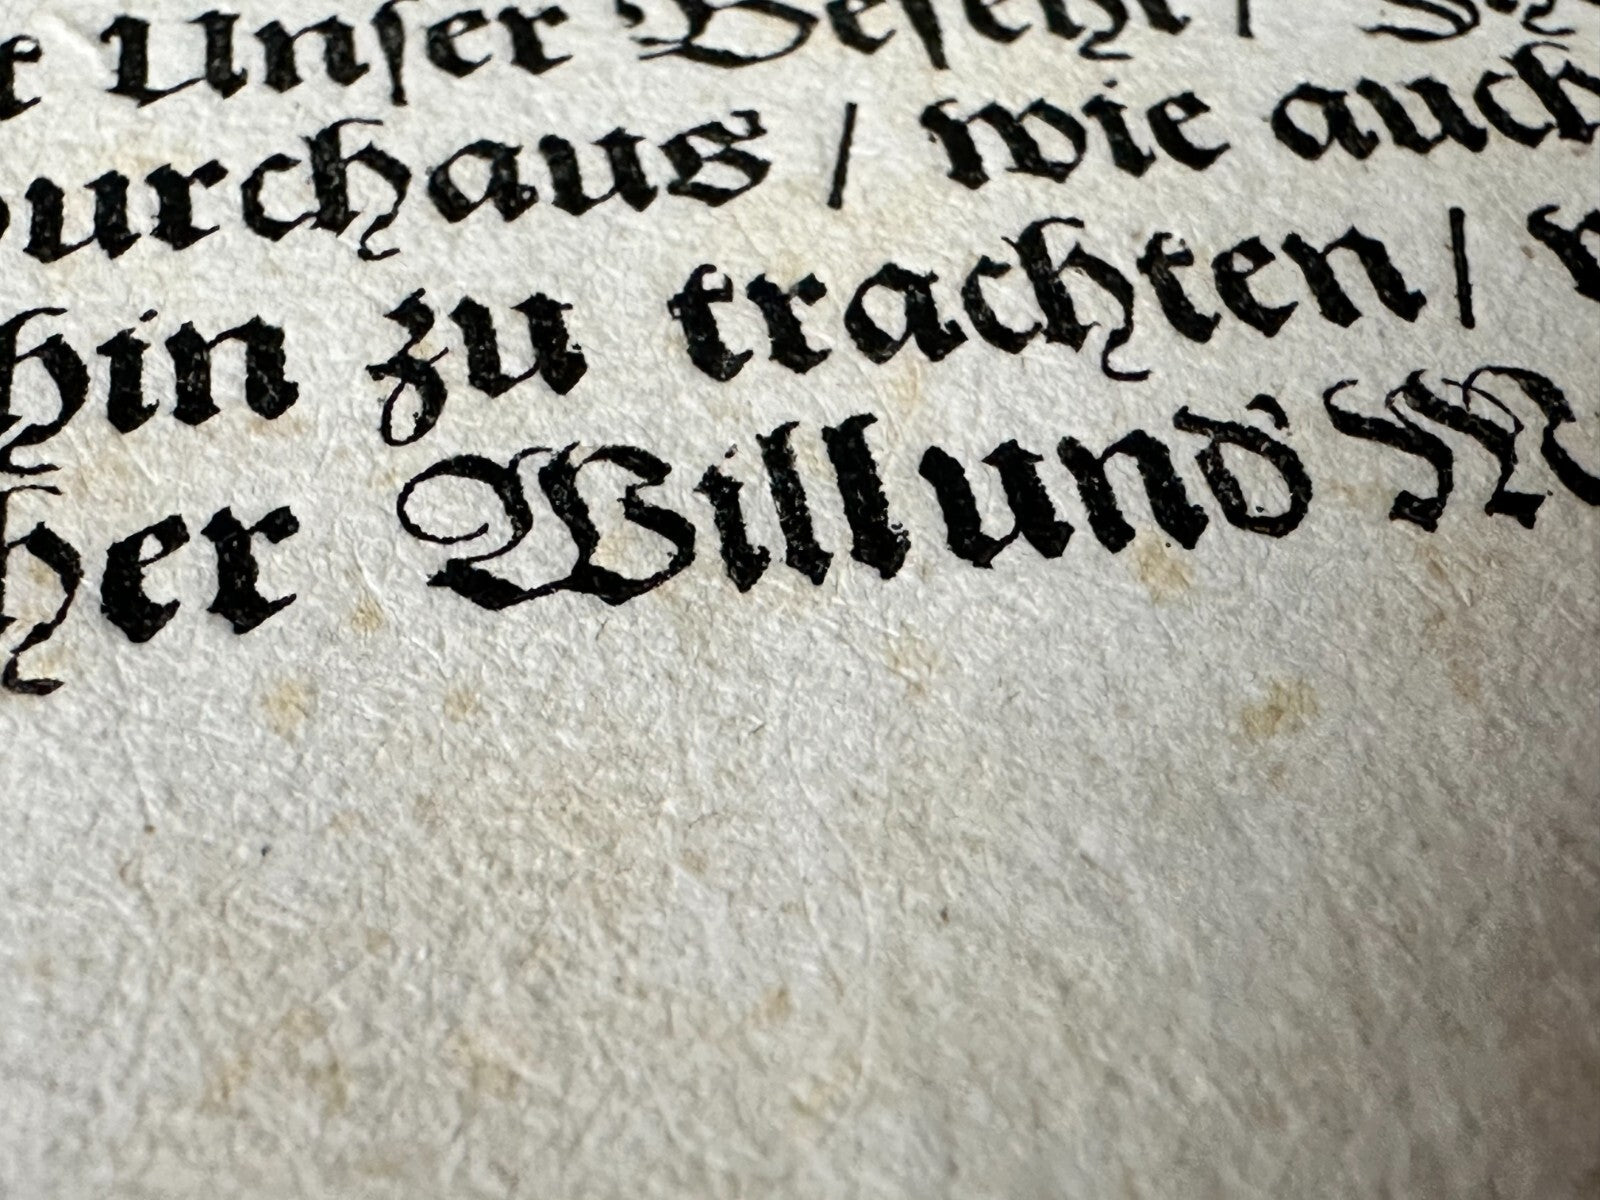 Unser Befehl /
durchaus / wie auch
hin zu trachten /
her Will und M